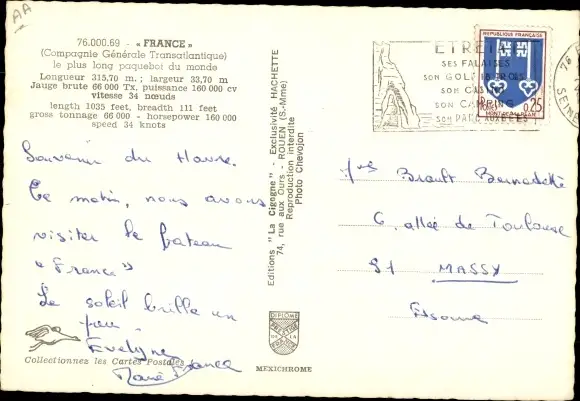 AA
76.000.69 - « FRANCE »
(Compagnie Générale Transatlantique)
le plus long paquebot du monde
Longueur 315,70 m. ; largeur 33,70 m
Jauge brute 66 000 Tx, puissance 160 000 cv
vitesse 34 nœuds
length 1035 feet, breadth 111 feet
gross tonnage 66 000 - horsepower 160 000
speed 34 knots
Souvenir du Havre.
Ce matin, nous avons
visiter le bateau
"France"
Le soleil brille un
peu.
Evelyne
Marie France
Collectionnez les Cartes Postales
Editions "La Cigogne" - Exclusivité HACHETTE
74, rue aux Ours - ROUEN (S.-Mme)
Reproduction interdite
Photo Chevojon
DIPLOME
MEXICHROME
ETRETAT
SES FALAISES
SON GOLF 18 TROUS
SON CASINO
SON CAMPING
SON PARC AUX BELLES
REPUBLIQUE FRANÇAISE
POSTES
0,25
MONT-DE-MARSAN
76
SEINE
Brault Bernadette
6, allée de Toulouse
91 MASSY
Essonne